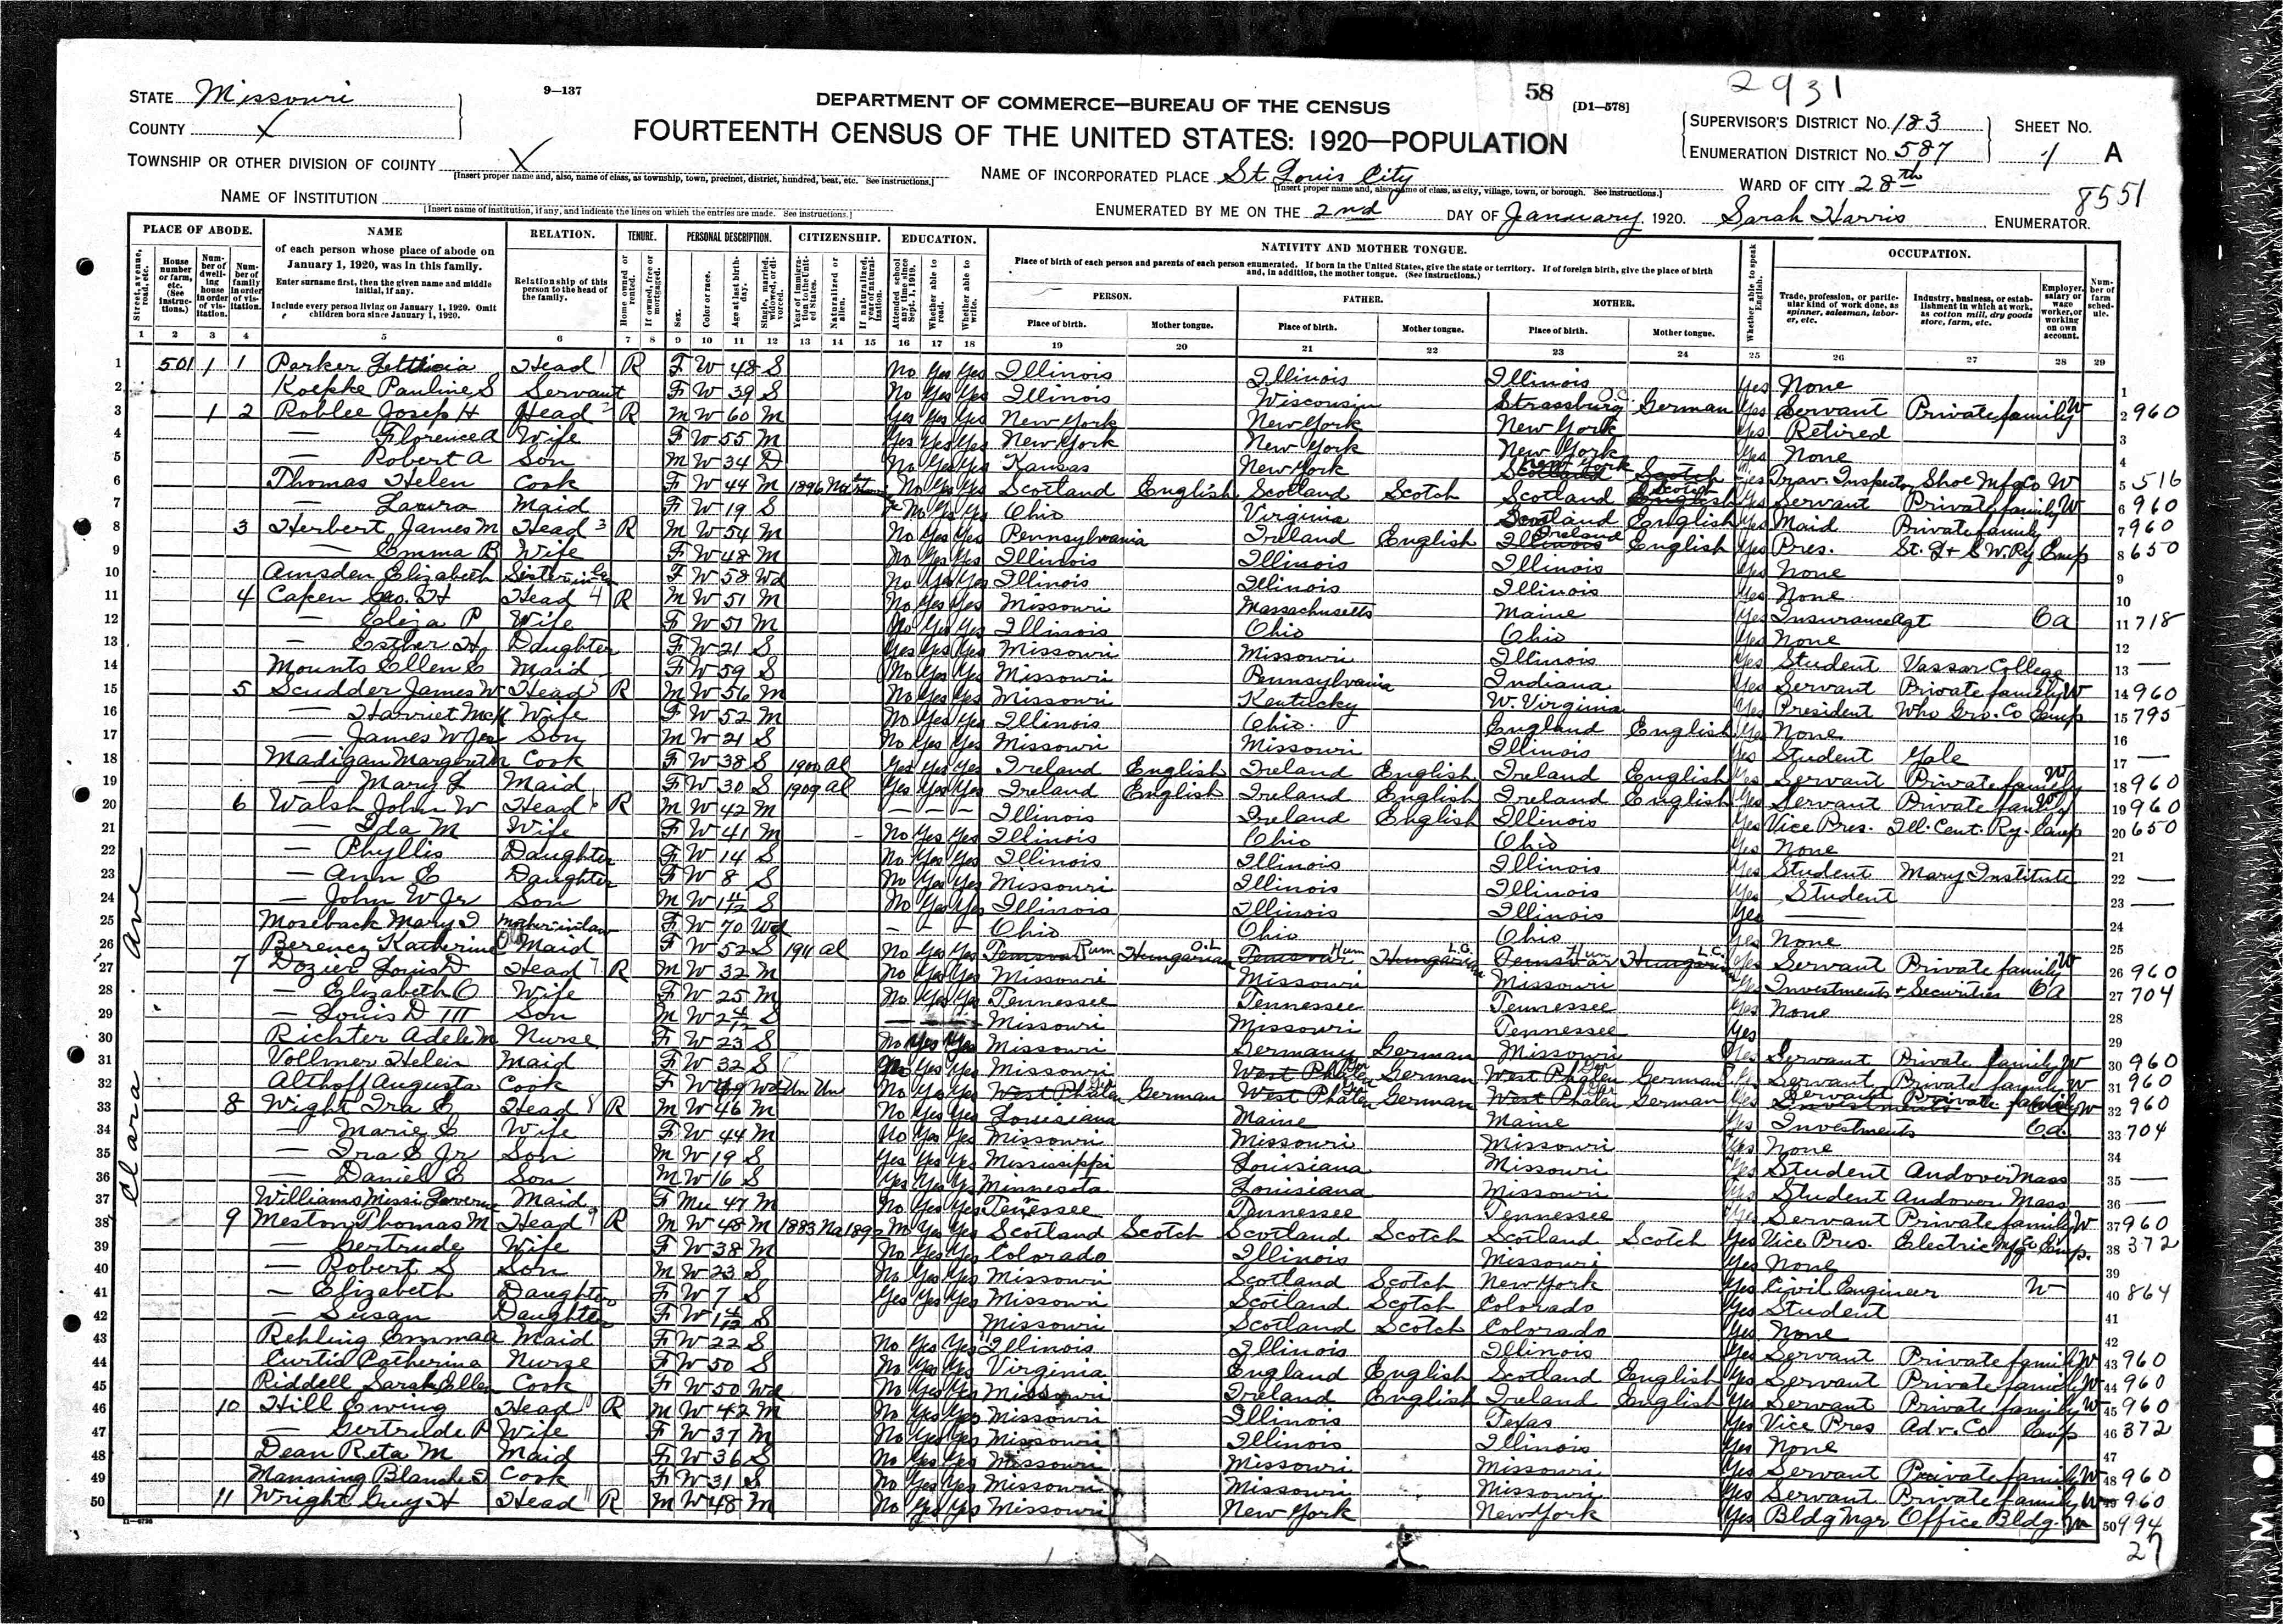 2931
9—137
58
[D1—578]
STATE Missouri
COUNTY X
DEPARTMENT OF COMMERCE—BUREAU OF THE CENSUS
FOURTEENTH CENSUS OF THE UNITED STATES: 1920—POPULATION
SUPERVISOR'S DISTRICT No. 183
ENUMERATION DISTRICT No. 587
SHEET No. 1 A
TOWNSHIP OR OTHER DIVISION OF COUNTY X
[Insert proper name and, also, name of class, as township, town, precinct, district, hundred, beat, etc. See instructions.]
NAME OF INCORPORATED PLACE St. Louis City
[Insert proper name and, also, name of class, as city, village, town, or borough. See instructions.]
WARD OF CITY 28th
8551
NAME OF INSTITUTION
[Insert name of institution, if any, and indicate the lines on which the entries are made. See instructions.]
ENUMERATED BY ME ON THE 2nd DAY OF January, 1920. Sarah Harris ENUMERATOR.
PLACE OF ABODE. NAME RELATION. TENURE. PERSONAL DESCRIPTION. CITIZENSHIP. EDUCATION. NATIVITY AND MOTHER TONGUE. OCCUPATION.
of each person whose place of abode on January 1, 1920, was in this family.
Enter surname first, then the given name and middle initial, if any.
Include every person living on January 1, 1920. Omit children born since January 1, 1920.
Relationship of this person to the head of the family.
Place of birth of each person and parents of each person enumerated. If born in the United States, give the state or territory. If of foreign birth, give the place of birth and, in addition, the mother tongue. (See instructions.)
PERSON. FATHER. MOTHER.
Place of birth. Mother tongue. Place of birth. Mother tongue. Place of birth. Mother tongue.
Whether able to speak English.
Trade, profession, or particular kind of work done, as spinner, salesman, laborer, etc.
Industry, business, or establishment in which at work, as cotton mill, dry goods store, farm, etc.
Employer, salary or wage worker, or working on own account.
Number of farm schedule.
1 2 3 4 5 6 7 8 9 10 11 12 13 14 15 16 17 18 19 20 21 22 23 24 25 26 27 28 29
Clara Ave
1 501 1 1 Parker Head R F W 48 S No Yes Yes Illinois Illinois Illinois Yes None
2 Koepke Pauline S Servant F W 39 S No Yes Yes Illinois Wisconsin Strassburg German Yes Servant Private family W 960
3 1 2 Roblee Joseph H Head R M W 60 M Yes Yes Yes New York New York New York Yes Retired
4 — Florence A Wife F W 55 M Yes Yes Yes New York New York New York Yes None
5 — Robert A Son M W 34 D No Yes Yes Kansas New York New York Trav. Inspector Shoe Mfg Co W 516
6 Thomas Helen Cook F W 44 M 1896 Na No Yes Yes Scotland English Scotland Scotch Scotland Scotch Yes Servant Private family W 960
7 — Laura Maid F W 19 S No Yes Yes Ohio Virginia Scotland English Yes Maid Private family 960
8 3 Herbert James M Head R M W 54 M No Yes Yes Pennsylvania Ireland English Ireland English Yes Pres. St. L & S W. Ry Emp 650
9 — Emma B Wife F W 48 M No Yes Yes Illinois Illinois Illinois Yes None
10 Amsden Elizabeth Sister in law F W 58 Wd No Yes Yes Illinois Illinois Illinois Yes None
11 4 Capen Geo. H Head R M W 51 M No Yes Yes Missouri Massachusetts Maine Yes Insurance Agt O a 718
12 — Eliza P Wife F W 51 M No Yes Yes Illinois Ohio Ohio Yes None
13 — Esther H Daughter F W 21 S Yes Yes Yes Missouri Missouri Illinois Yes Student Vassar College —
14 Mounts Ellen E Maid F W 59 S No Yes Yes Missouri Pennsylvania Indiana Yes Servant Private family W 960
15 5 Scudder James W Head R M W 56 M No Yes Yes Missouri Kentucky W. Virginia Yes President Who Gro. Co Emp 795
16 — Harriet McK Wife F W 52 M No Yes Yes Illinois Ohio England English Yes None
17 — James W Jr Son M W 21 S No Yes Yes Missouri Missouri Illinois Yes Student Yale —
18 Madigan Margreth Cook F W 38 S 1900 Al Yes Yes Yes Ireland English Ireland English Ireland English Yes Servant Private family W 960
19 — Mary L Maid F W 30 S 1909 Al Yes Yes Yes Ireland English Ireland English Ireland English Yes Servant Private family W 960
20 6 Walsh John W Head R M W 42 M — — — Illinois Ireland English Illinois Yes Vice Pres. Ill. Cent. Ry. Emp 650
21 — Ida M Wife F W 41 M No Yes Yes Illinois Ohio Ohio Yes None
22 — Phyllis Daughter F W 14 S No Yes Yes Illinois Illinois Illinois Yes Student Mary Institute —
23 — Ann E Daughter F W 8 S No Yes Yes Missouri Illinois Illinois Yes Student —
24 — John W Jr Son M W S No Yes Yes Illinois Illinois Illinois Yes —
25 Moseback Mary I Mother in law F W 70 Wd — — — Ohio Ohio Ohio Yes None
26 Berencz Katherine Maid F W 52 S 1911 Al No Yes Yes Temesvar Rum Hungarian Temesvar Hum Hungarian Temesvar Hum Hungarian Yes Servant Private family W 960
27 7 Dozier Louis D Head R M W 32 M No Yes Yes Missouri Missouri Missouri Yes Investments & Securities O A 704
28 — Elizabeth O Wife F W 25 M No Yes Yes Tennessee Tennessee Tennessee Yes None
29 — Louis D III Son M W 2 4/12 S — — — Missouri Missouri Tennessee Yes
30 Richter Adele M Nurse F W 23 S No Yes Yes Missouri Germany German Missouri Yes Servant Private family W 960
31 Vollmer Helen Maid F W 32 S No Yes Yes Missouri West Phalen German West Phalen German Yes Servant Private family W 960
32 Althoff Augusta Cook F W 49 Wd Un Un No Yes Yes West Phalen German West Phalen German West Phalen German Yes Servant Private family W 960
33 8 Wight Ira E Head R M W 46 M No Yes Yes Louisiana Maine Maine Yes Investments O a 704
34 — Marie E Wife F W 44 M No Yes Yes Missouri Missouri Missouri Yes None
35 — Ira E Jr Son M W 19 S Yes Yes Yes Mississippi Louisiana Missouri Yes Student Andover Mass —
36 — Daniel E Son M W 16 S Yes Yes Yes Minnesota Louisiana Missouri Yes Student Andover Mass —
37 Williams Maid F Mu 47 M No Yes Yes Tennessee Tennessee Tennessee Yes Servant Private family W 960
38 9 Meston Thomas M Head R M W 48 M 1883 Na 1892 No Yes Yes Scotland Scotch Scotland Scotch Scotland Scotch Yes Vice Pres. Electric Mfg Co Emp. 372
39 — Gertrude Wife F W 38 M No Yes Yes Colorado Illinois Missouri Yes None
40 — Robert S Son M W 23 S No Yes Yes Missouri Scotland Scotch New York Yes Civil Engineer W 864
41 — Elizabeth Daughter F W 7 S Yes Yes Yes Missouri Scotland Scotch Colorado Yes Student
42 — Susan Daughter F W S Missouri Scotland Scotch Colorado Yes None
43 Rehling Emma A Maid F W 22 S No Yes Yes Illinois Illinois Illinois Yes Servant Private family W 960
44 Curtis Catherine Nurse F W 50 S No Yes Yes Virginia England English Scotland English Yes Servant Private family W 960
45 Riddell Sarah Ellen Cook F W 50 Wd No Yes Yes Missouri Ireland English Ireland English Yes Servant Private family W 960
46 10 Hill Ewing Head R M W 42 M No Yes Yes Missouri Illinois Texas Yes Vice Pres Adv. Co Emp 372
47 — Gertrude P Wife F W 37 M No Yes Yes Missouri Illinois Illinois Yes None
48 Dean Reta M Maid F W 36 S No Yes Yes Missouri Missouri Missouri Yes Servant Private family W 960
49 Manning Blanche Cook F W 31 S No Yes Yes Missouri Missouri Missouri Yes Servant Private family W 960
50 11 Wright Guy H Head R M W 48 M No Yes Yes Missouri New York New York Yes Bldg Mgr Office Bldg. W 994
27